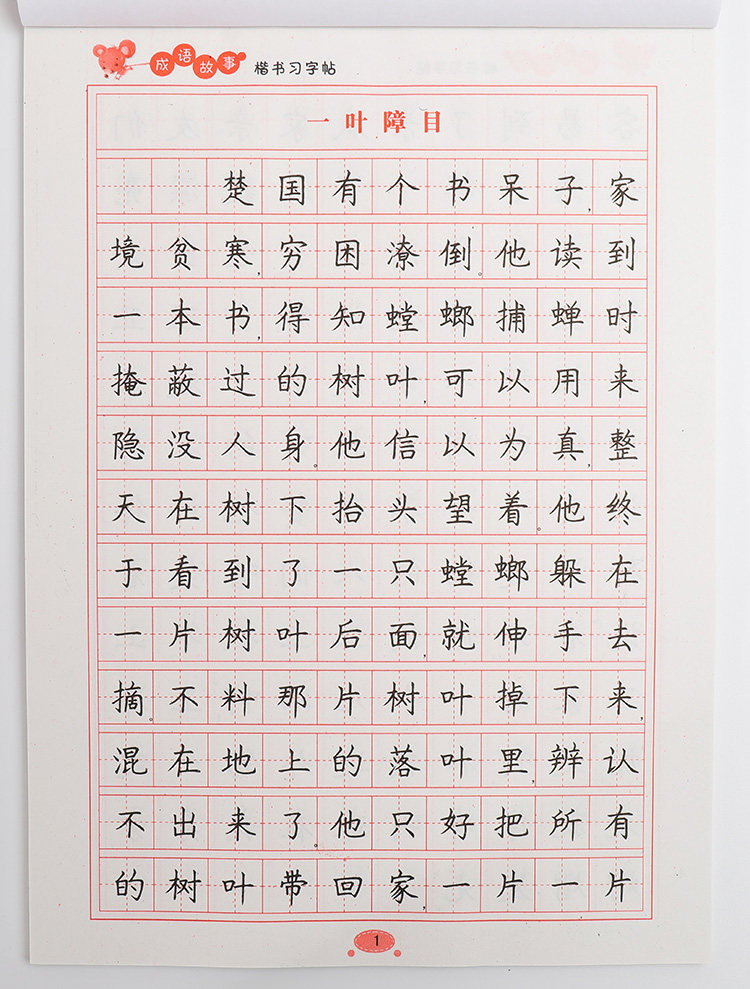 成语故事 楷书习字帖
一叶障目
楚国有个书呆子,家
境贫寒,穷困潦倒。他读到
一本书,得知螳螂捕蝉时
掩蔽过的树叶,可以用来
隐没人身。他信以为真,整
天在树下抬头望着。他终
于看到了一只螳螂躲在
一片树叶后面,就伸手去
摘。不料那片树叶掉下来,
混在地上的落叶里,辨认
不出来了。他只好把所有
的树叶带回家,一片一片
1